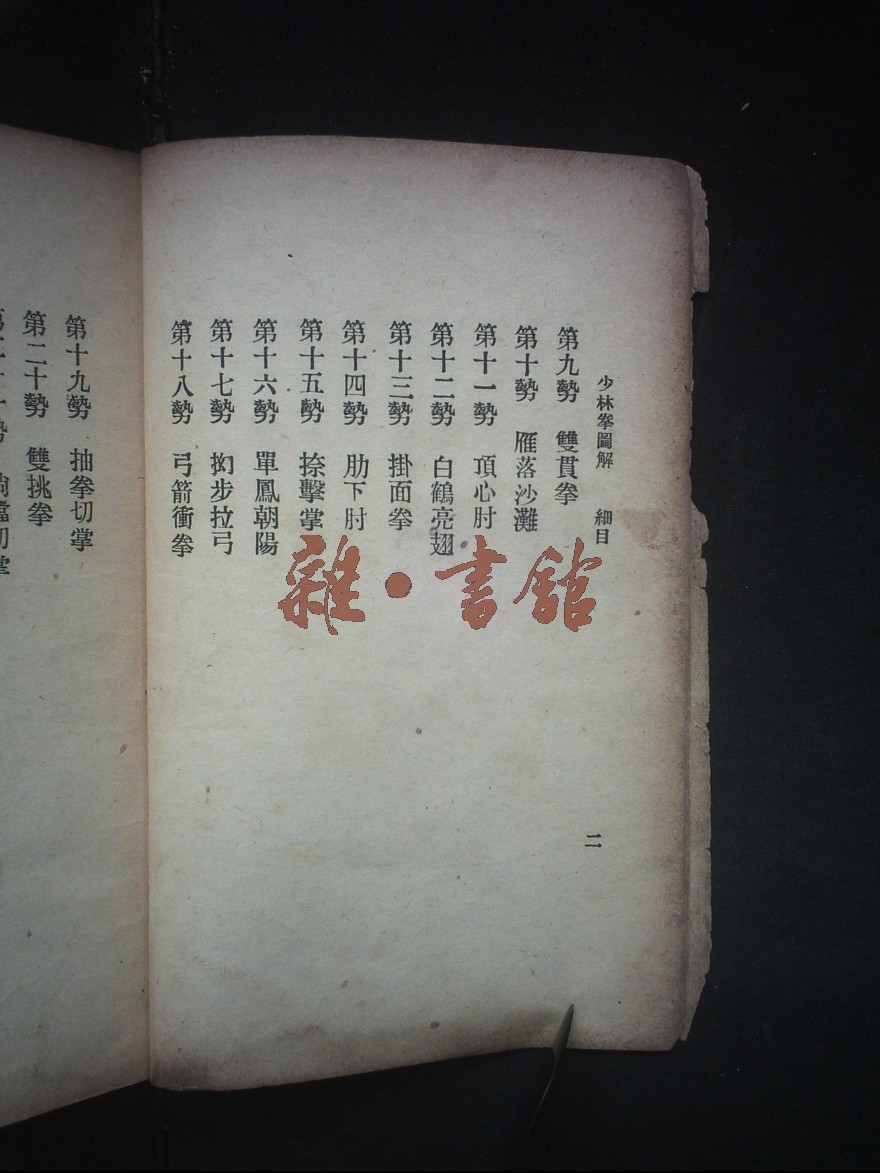 少林拳圖解 細目
第九勢 雙貫拳
第十勢 雁落沙灘
第十一勢 頂心肘
第十二勢 白鶴亮翅
第十三勢 掛面拳
第十四勢 肋下肘
第十五勢 捺擊掌
第十六勢 單鳳朝陽
第十七勢 抝步拉弓
第十八勢 弓箭衝拳
二
第十九勢 抽拳切掌
第二十勢 雙挑拳
雜·書館